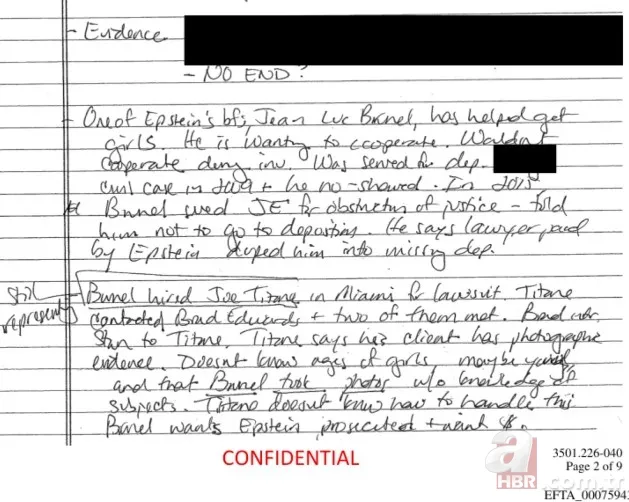 - Evidence
- NO END?
- One of Epstein's bf's, Jean Luc Brunel, has helped get
girls. He is wanting to cooperate. Wouldn't
cooperate during inv. Was served for dep.
civil case in 2009 + he no-showed. In 2015,
Brunel sued JE for obstruction of justice - told
him not to go to deposition. He says lawyer paid
by Epstein duped him into missing dep.
still represent
- Brunel hired Joe Titone in Miami for lawsuit. Titone
contacted Brad Edwards + two of them met. Brad
to Titone. Titone says his client has photographic
evidence. Doesn't know ages of girls, maybe young
and that Brunel took photos w/o knowledge of
subjects. Titone doesn't know how to handle this
Brunel wants Epstein prosecuted + want $.
CONFIDENTIAL
3501.226-040
Page 2 of 9
EFTA_0007594
a
HBR
.com.tr